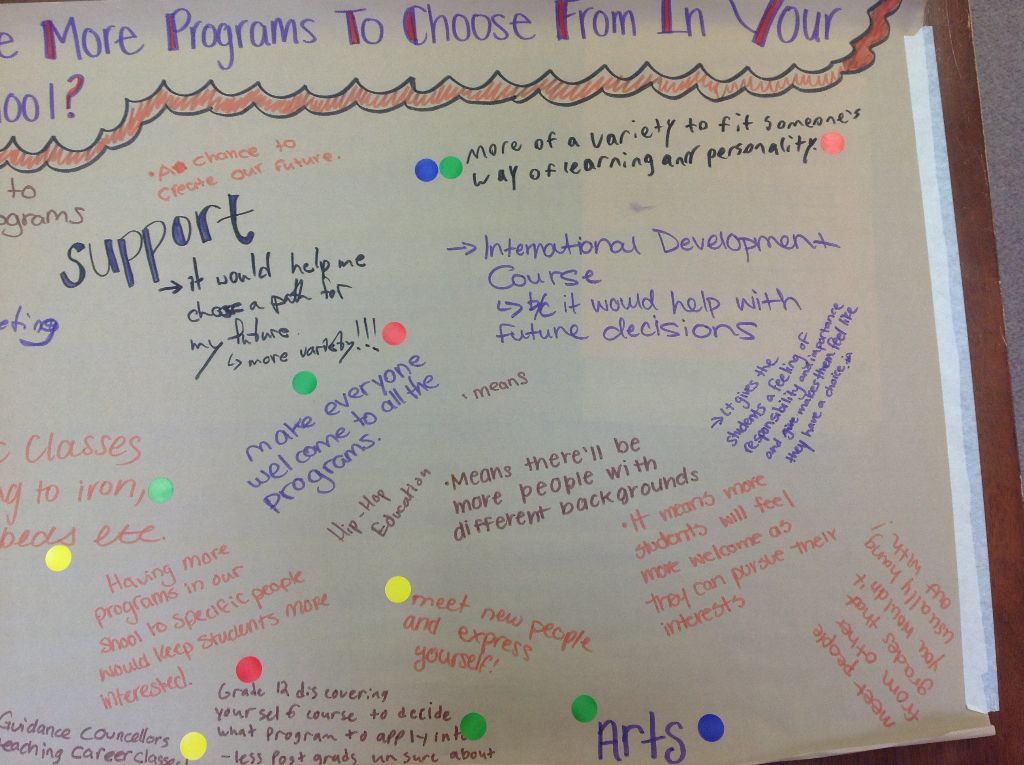 e More Programs To Choose From In Your
ool?
to
ograms
• A chance to
create our future.
More of a variety to fit someone's
way of learning and personality.
Support
→ it would help me
choose a path for
my future
↳ more variety!!!
→ International Development
Course
↳ b/c it would help with
future decisions
eting
make everyone
welcome to all the
programs.
• means
→ it gives the
students a feeling of
responsibility and importance
and give makes them feel like
they have a choice.
c Classes
ng to iron,
beds etc.
Hip-Hop
Education
• Means there'll be
more people with
different backgrounds
• It means more
students will feel
more welcome as
they can pursue their
interests
Having more
programs in our
shool to specific people
would keep students more
interested.
meet new people
and express
yourself!
meet people
from other
grades that
you wouldn't
usually hang
out with!
Guidance councellors
teaching career classes!
Grade 12 discovering
yourself course to decide
what program to apply into
- less post grads unsure about
Arts